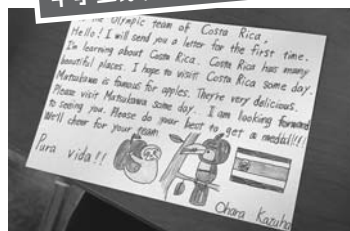 the Olympic team of Costa Rica,
Hello! I will send you a letter for the first time.
I'm learning about Costa Rica. Costa Rica has many
beautiful places. I hope to visit Costa Rica some day.
Matsukawa is famous for apples. They're very delicious.
Please visit Matsukawa some day. I am looking forward
to seeing you. Please do your best to get a medal!!!
We'll cheer for your team.
Pura vida!!
Ohara Kazuha